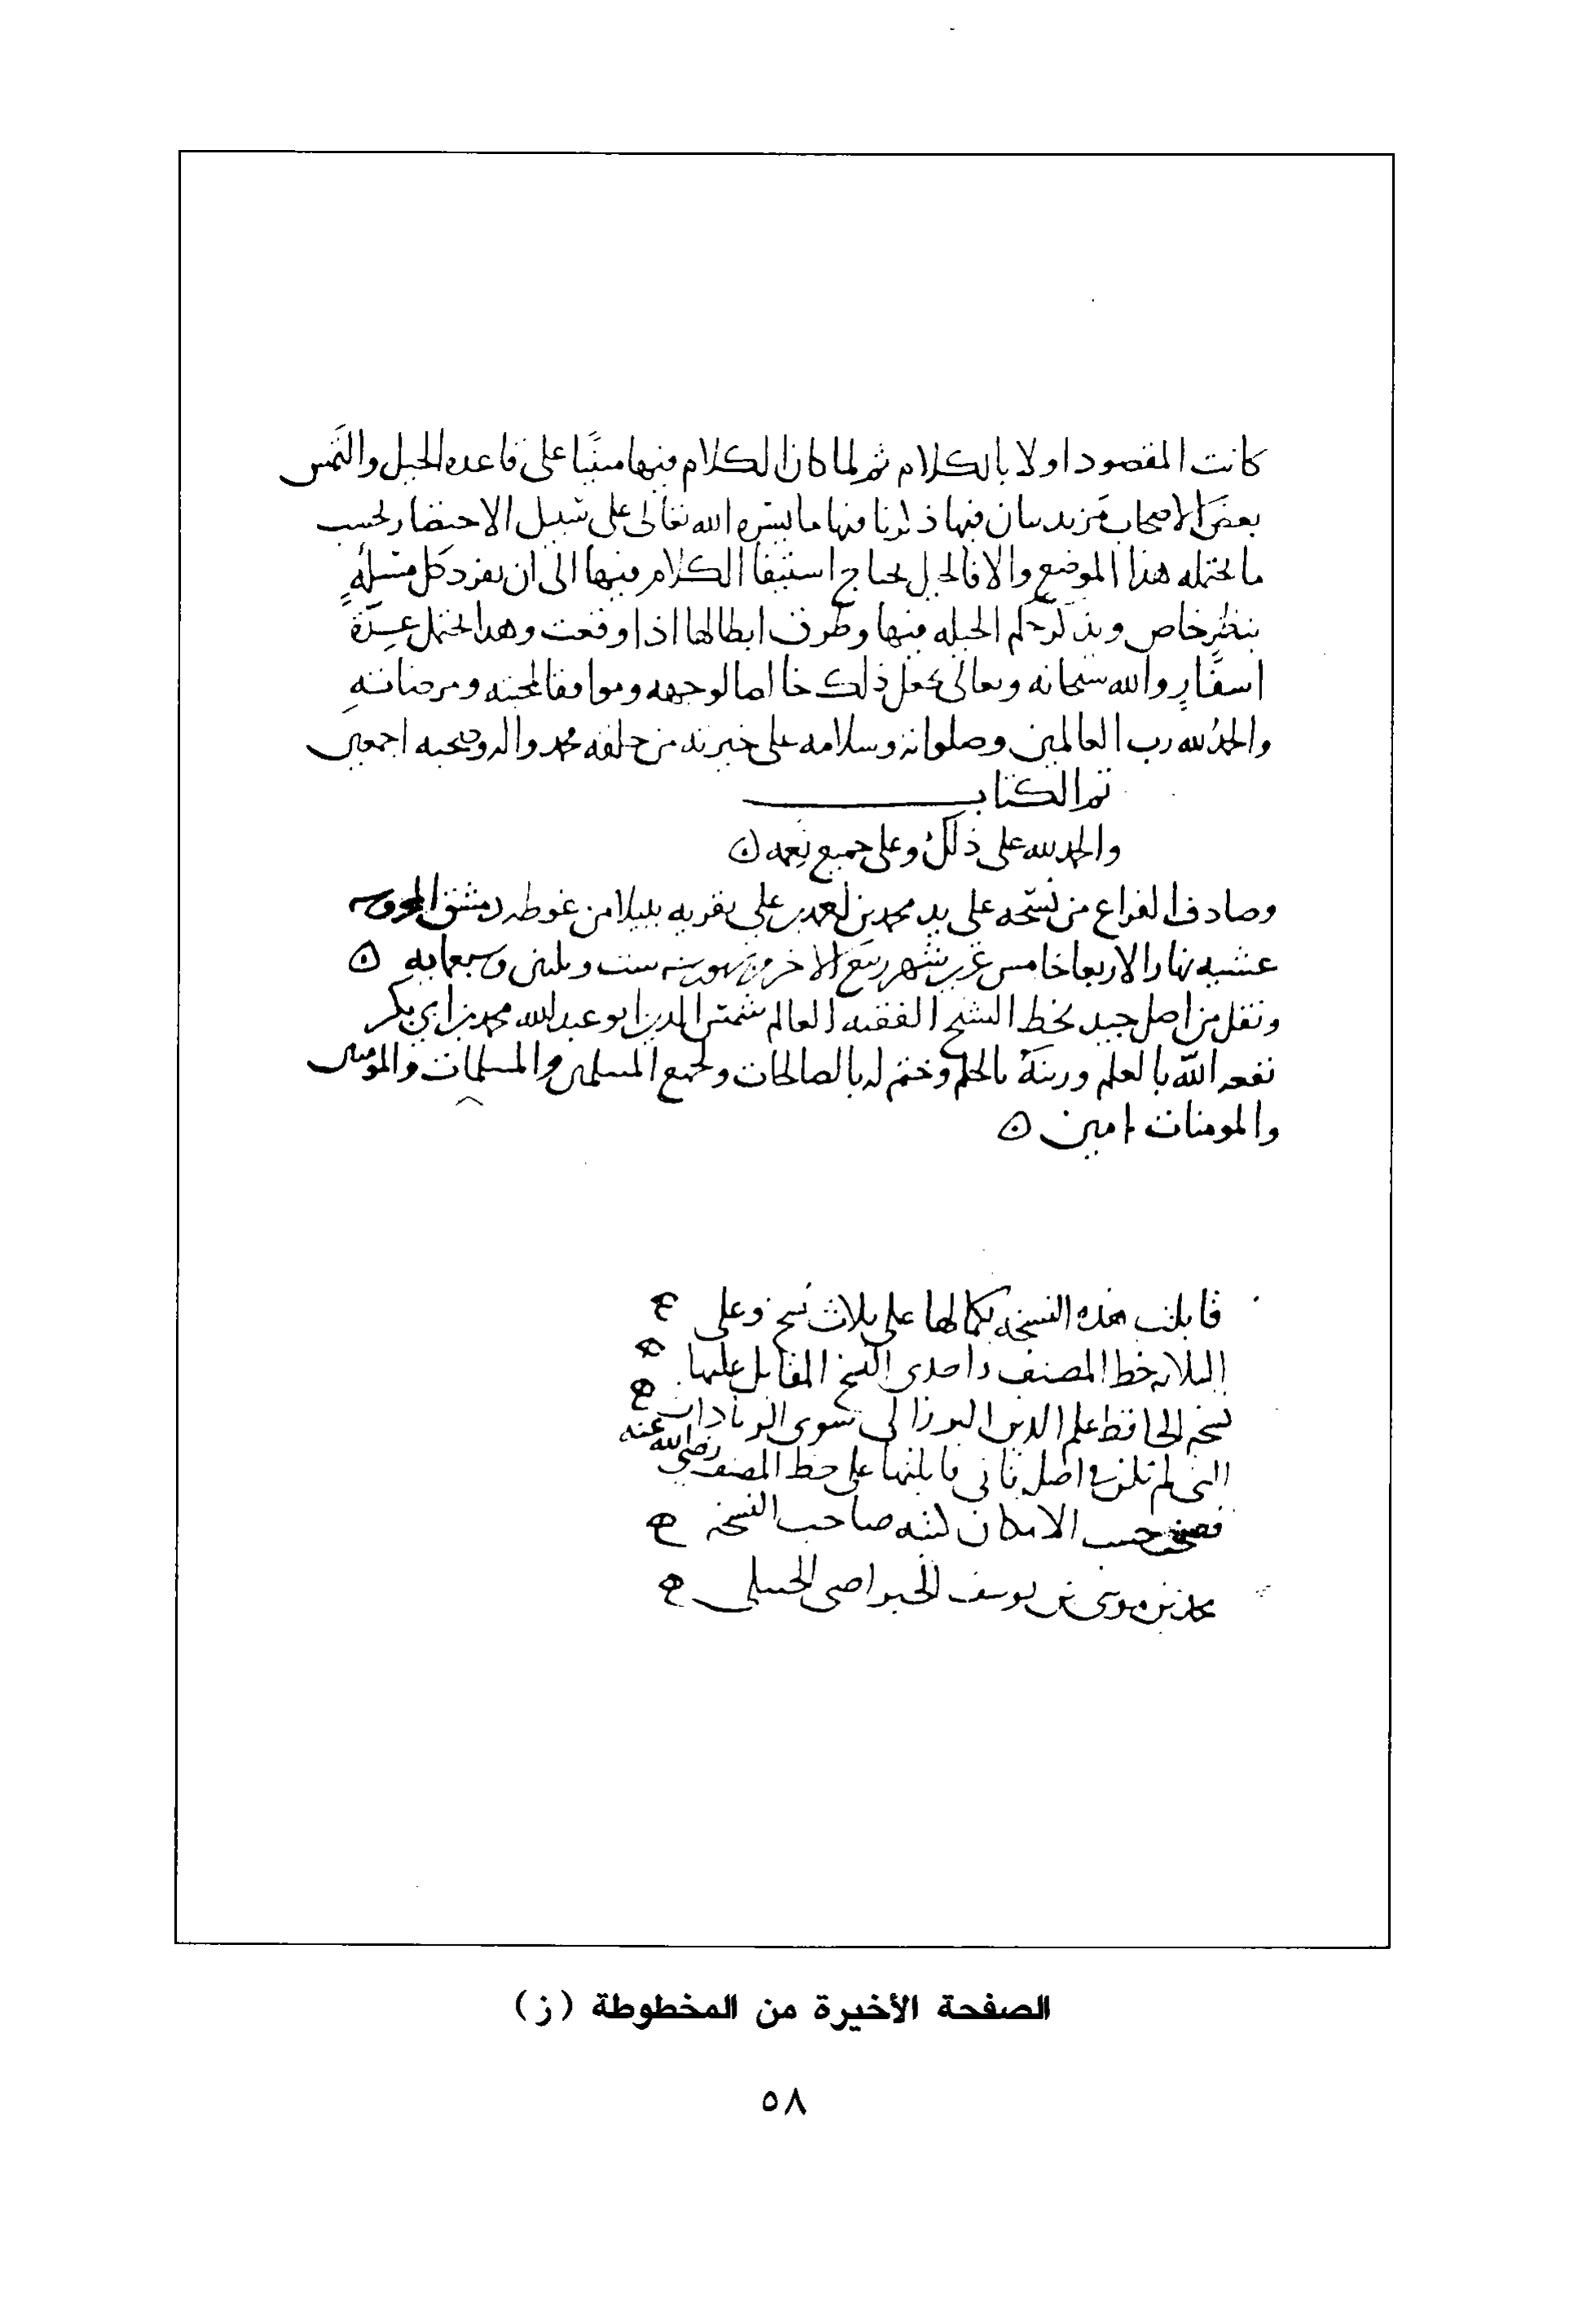 كانت المقصود اولا بالكلام ثم لما كان الكلام فيها مبنيًا على قاعده الحيل والتمس
بعض الاصحاب مزيد بيان فيها ذكرنا منها ما يسره الله تعالى على سبيل الاختصار بحسب
ما يحتمله هذا الموضع والا فالحيل يحتاج استيفا الكلام فيها الى ان يفرد كل مسئلةٍ
بنظرٍ خاص ويذكر حكم الحيله فيها وطرق ابطالها اذا وقعت وهذا يحتمل عدّة
اسفارٍ والله سبحانه وتعالى يجعل ذلك خالصا لوجهه وموافقا لمحبته ومرضاته
والحمد لله رب العالمين وصلواته وسلامه على خيرته من خلقه محمد واله وصحبه اجمعين
تم الكتاب
والحمد لله على ذلك وعلى جميع نعمه
وصادف الفراغ من نسخه على يد محمد بن على بقريه من غوطه دمشق المحروسه
عشيه نهار الاربعا خامس شهر ربيع الاخر من شهور سنه ست وثلثين وسبعمايه
ونقل من اصل جيد بخط الشيخ الفقيه العالم شمس الدين ابو عبد الله محمد بن ابي بكر
نفعه الله بالعلم وزينه بالحلم وختم له بالصالحات ولجميع المسلمين والمسلمات والمومنين
والمومنات امين
قابلت هذه النسخه بكمالها على ثلاث نسخ وعلى
الثلاثه خط المصنف واحدى النسخ المقابل عليها
نسخه الحافظ علم الدين البرزالى سوى الزيادات
التى لم تكن فى اصل ثاني قابلتها على خط المصنف رضي الله عنه
فصح حسب الامكان كتبه صاحب النسخه
محمد بن موسى بن يوسف الحنبلى
الصفحة الأخيرة من المخطوطة (ز)
٥٨